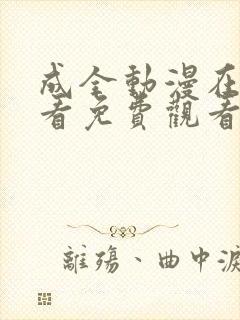 成全動漫在
看免費觀看
離殤、曲中淚